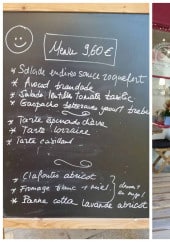 Menu 9,60€
* Salade endives sauce roquefort
* Avocat brandade
* Salade lentilles Tomate
* Gaspacho betteraves yaourt
* Tarte épinards chèvre
* Tarte lorraine
* Tarte
* Clafoutis abricot
* Fromage blanc + miel
* Panna cotta lavande abricot